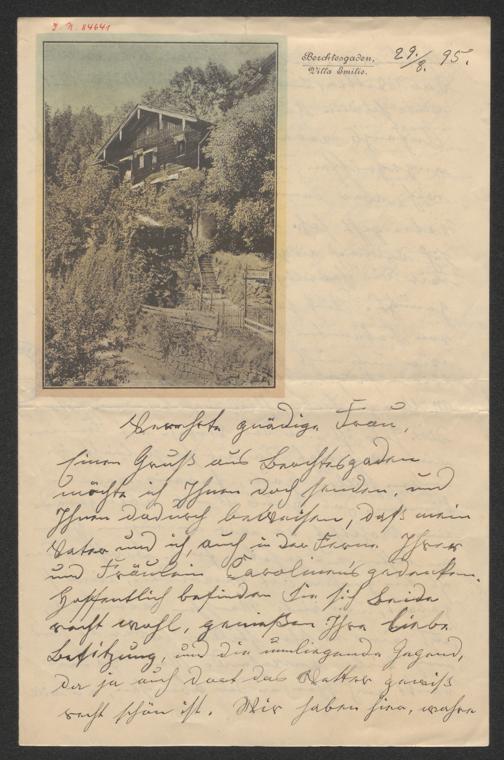 J. N. 84641
Berchtesgaden,
Villa Emilie.
29./8. 95.
Verehrte gnädige Frau,
Einen Gruß aus Berchtesgaden
möchte ich Ihnen doch senden, und
Ihnen dadurch beweisen, daß mein
Vater und ich, auch in der Ferne Ihrer
und Fräulein Carolinens gedenken.
Hoffentlich befinden Sie sich Beide
recht wohl, genießen Ihre liebe
Besitzung, und die umliegende Gegend,
da ja auch dort das Wetter gewiß
recht schön ist. Wir haben hier, wahre